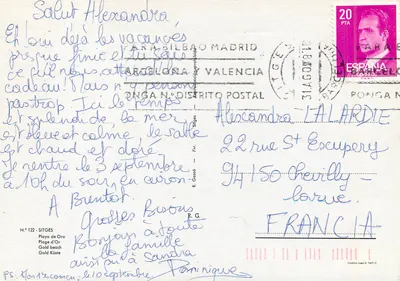 Salut Alexandra
Eh oui déjà les vacances
presque finie et tu sais
ce qui nous attend
cadeau. Mais n'y pensons
pas trop. Ici le temps
est splendide. la mer
est bleue et calme. le sable
est chaud et doré.
Je rentre le 3 septembre
à 10h du soir en avion
A Bientôt
Grosses Bisous
Bonjour à toute
la famille
ainsi qu'à Sandra
Dominique
PS:
10 septembre
Nº 122 - SITGES
Playa de Oro
Plage d'Or
Gold beach
Gold Küste
R. G.
20
PTA
ESPAÑA
PARA BILBAO MADRID
BARCELONA Y VALENCIA
PONGA Nº DISTRITO POSTAL
SITGES
31 AGO
PARA B
BARCELON
PONGA Nº
Alexandra LALARDIE
22 rue St Exupery
94150 Chevilly-
larue
FRANCIA